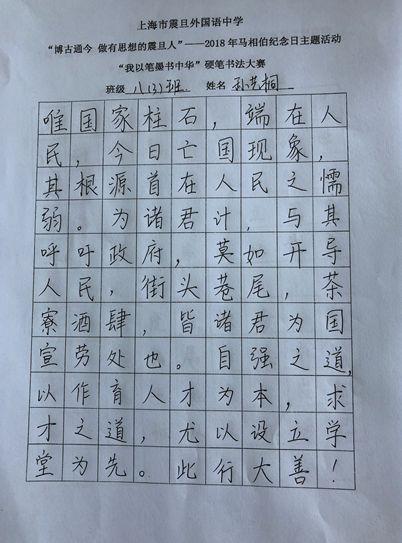 上海市震旦外国语中学
“博古通今 做有思想的震旦人”——2018年马相伯纪念日主题活动
“我以笔墨书中华”硬笔书法大赛
班级 八(3)班 姓名 孙艺桐
唯国家柱石，端在人
民，今日亡国现象，
其根源首在人民之懦
弱。为诸君计，与其
呼吁政府，莫如开导
人民，街头巷尾，茶
寮酒肆，皆诸君为国
宣劳处也。自强之道，
以作育人才为本，求
才之道，尤以设立学
堂为先。此行大善！